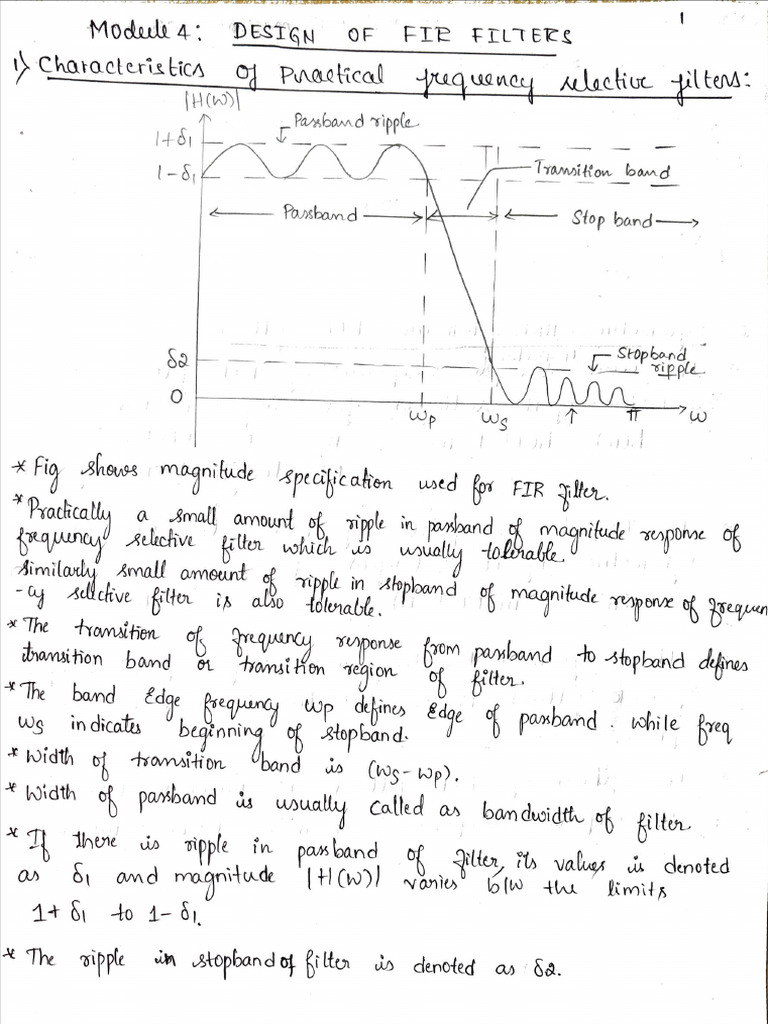 1
Module 4: DESIGN OF FIR FILTERS
1) Characteristics of Practical frequency selective filters:
|H(W)|
Passband ripple
1+δ1
1-δ1
Transition band
Passband
Stop band
δ2
Stopband
ripple
0
Wp
Ws
π
W
* Fig shows magnitude specification used for FIR filter.
* Practically a small amount of ripple in passband of magnitude response of
frequency selective filter which is usually tolerable.
similarly small amount of ripple in stopband of magnitude response of frequen
-cy selective filter is also tolerable.
* The transition of frequency response from passband to stopband defines
transition band or transition region of filter.
* The band Edge frequency wp defines Edge of passband. while freq
ws indicates beginning of stopband.
* Width of transition band is (ws-wp).
* Width of passband is usually called as bandwidth of filter.
* If there is ripple in passband of filter, its values is denoted
as δ1 and magnitude |H(W)| varies b/w the limits
1+ δ1 to 1- δ1.
* The ripple in stopband of filter is denoted as δ2.